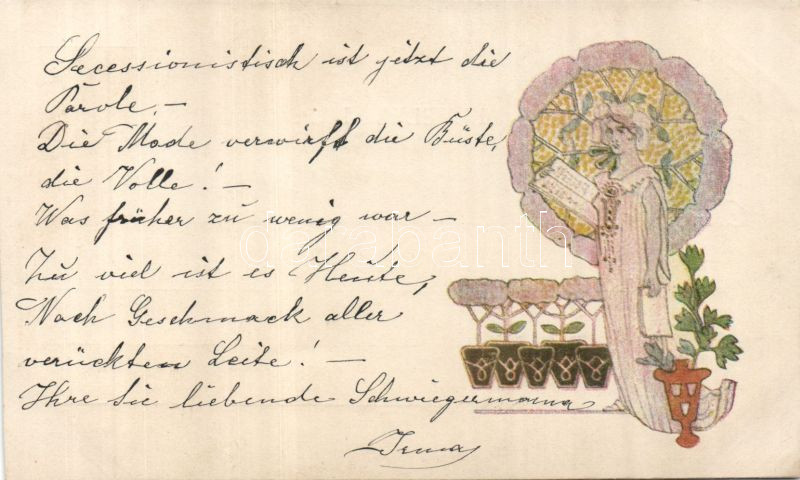 Secessionistisch ist jetzt die
Parole, –
Die Mode verwirft die Büste,
die Volle! –
Was früher zu wenig war –
Zu viel ist es Heute,
Nach Geschmack aller
verückten Leite! –
Ihre sie liebende Schwiegermama
Irma
darabanth